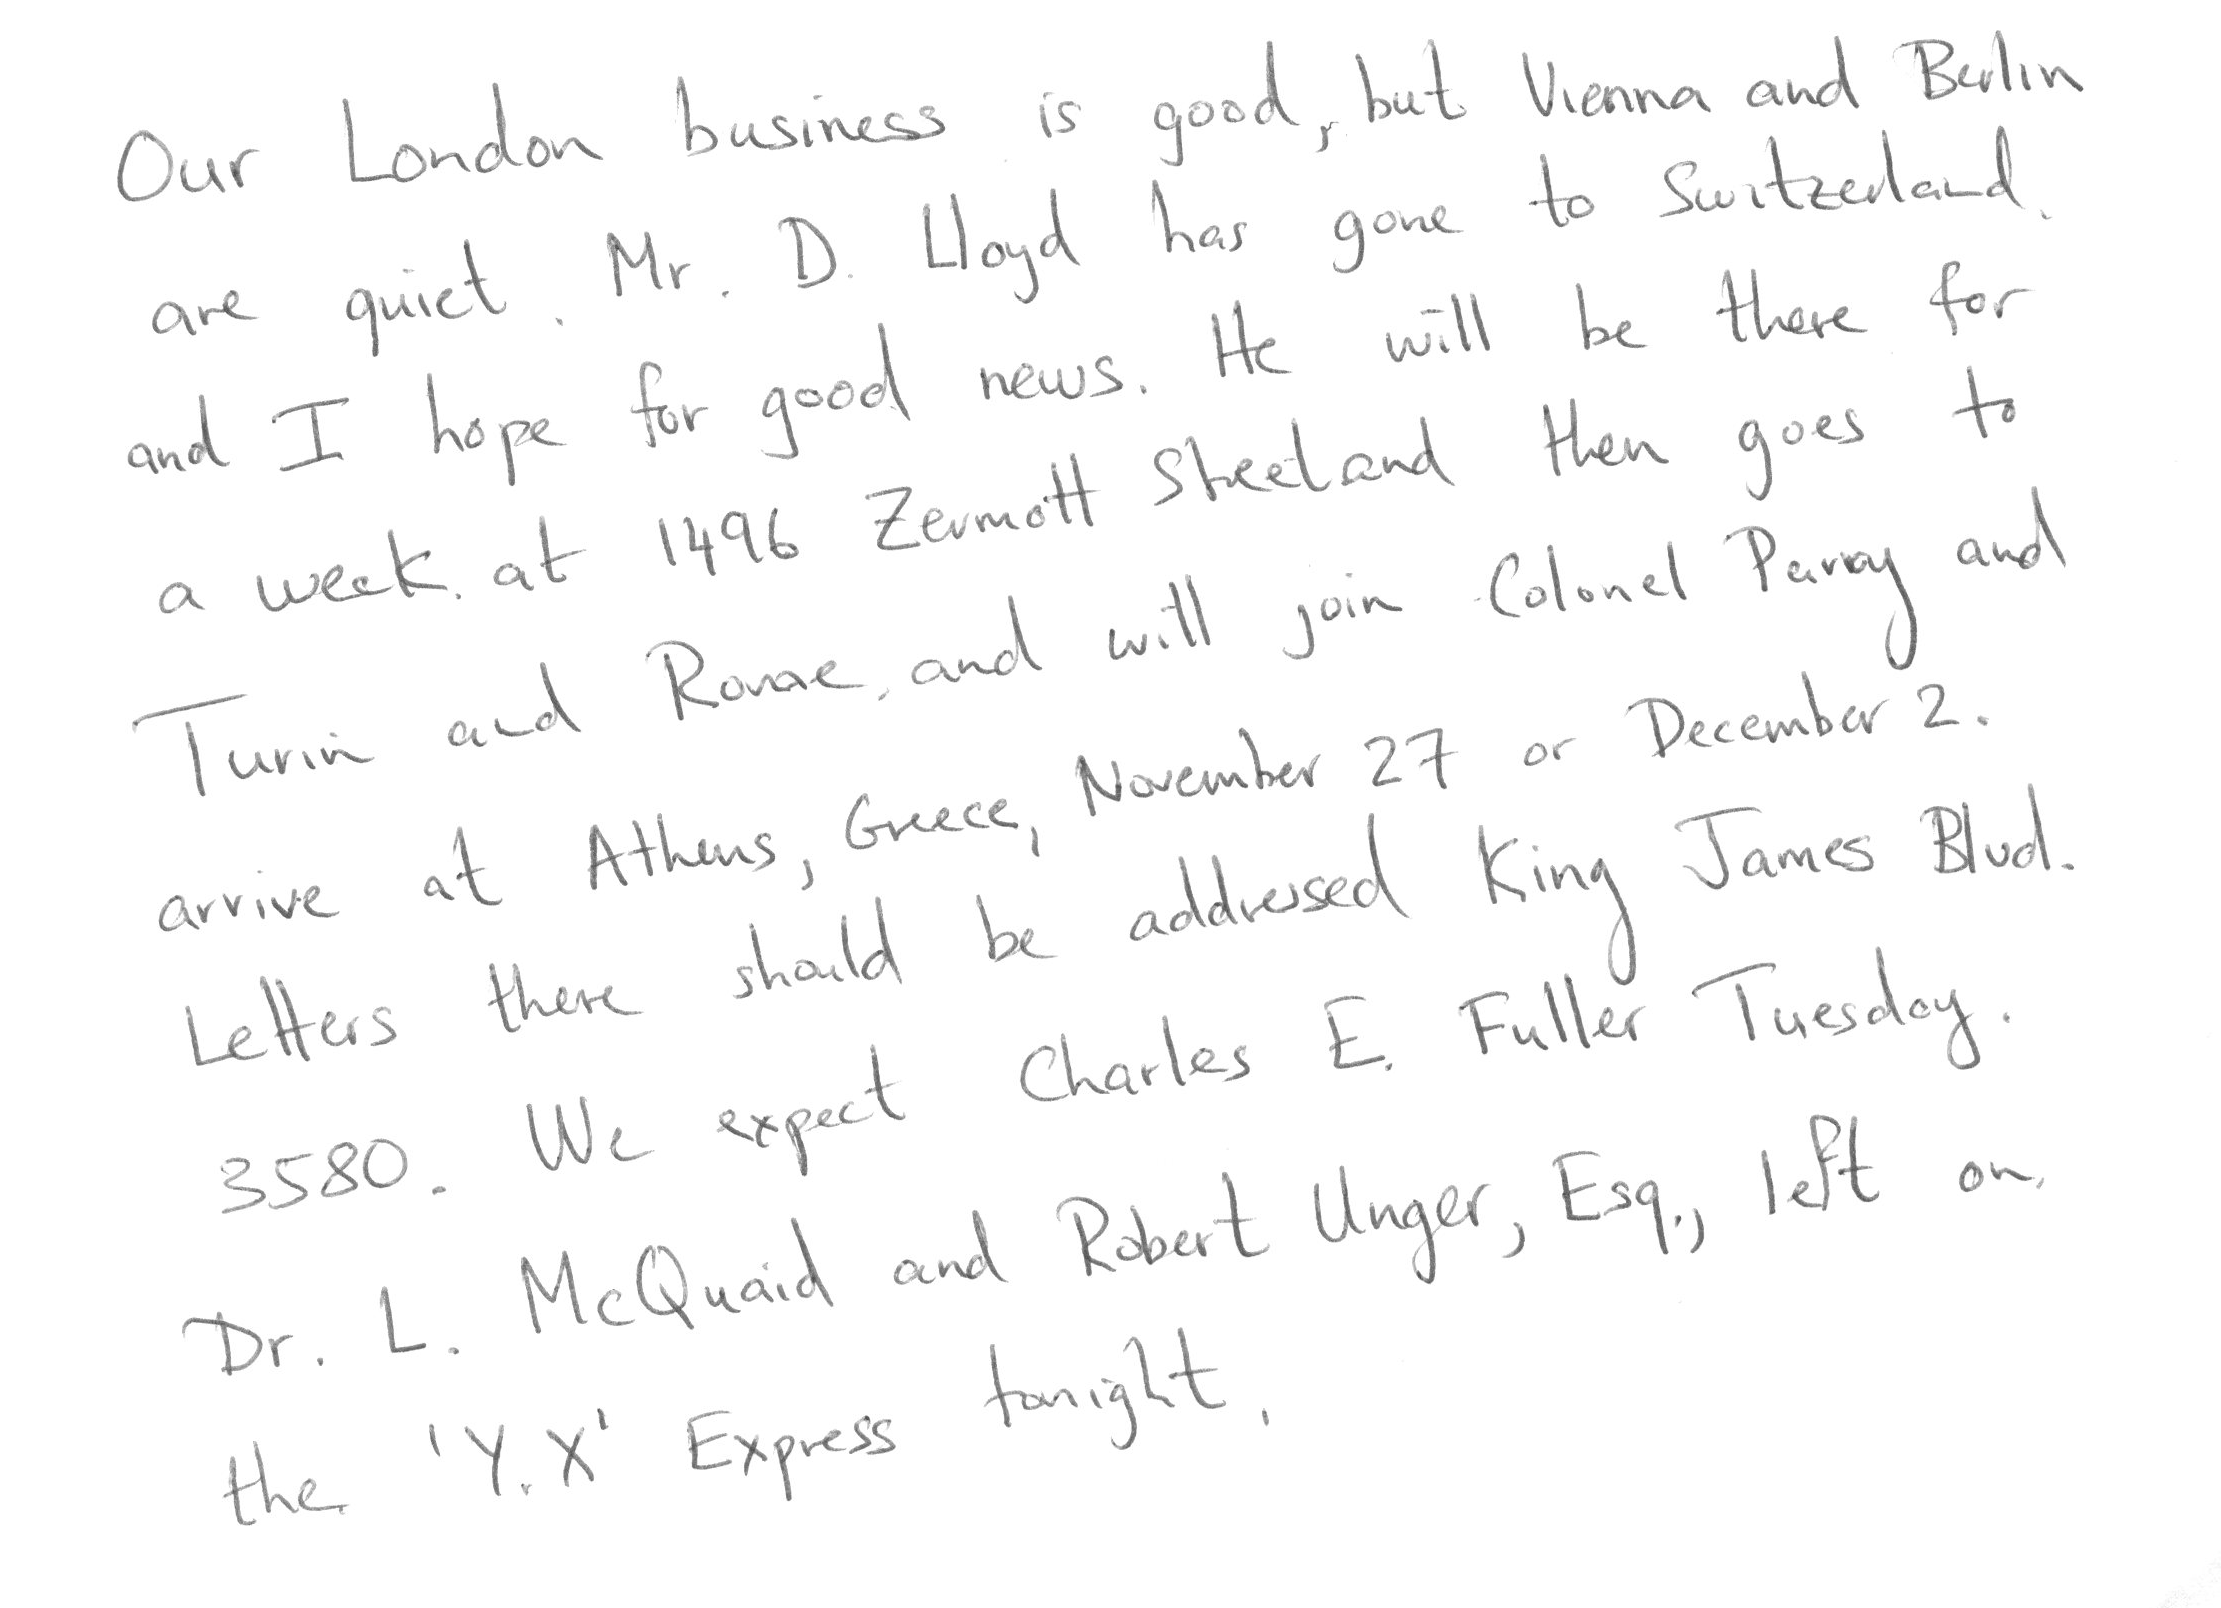 Our London business is good, but Vienna and Berlin
are quiet. Mr. D. Lloyd has gone to Switzerland.
and I hope for good news. He will be there for
a week at 1496 Zermott Street and then goes to
Turin and Rome, and will join Colonel Parry and
arrive at Athens, Greece, November 27 or December 2.
Letters there should be addressed King James Blvd.
3580. We expect Charles E. Fuller Tuesday.
Dr. L. McQuaid and Robert Unger, Esq., left on
the 'Y.X' Express tonight.